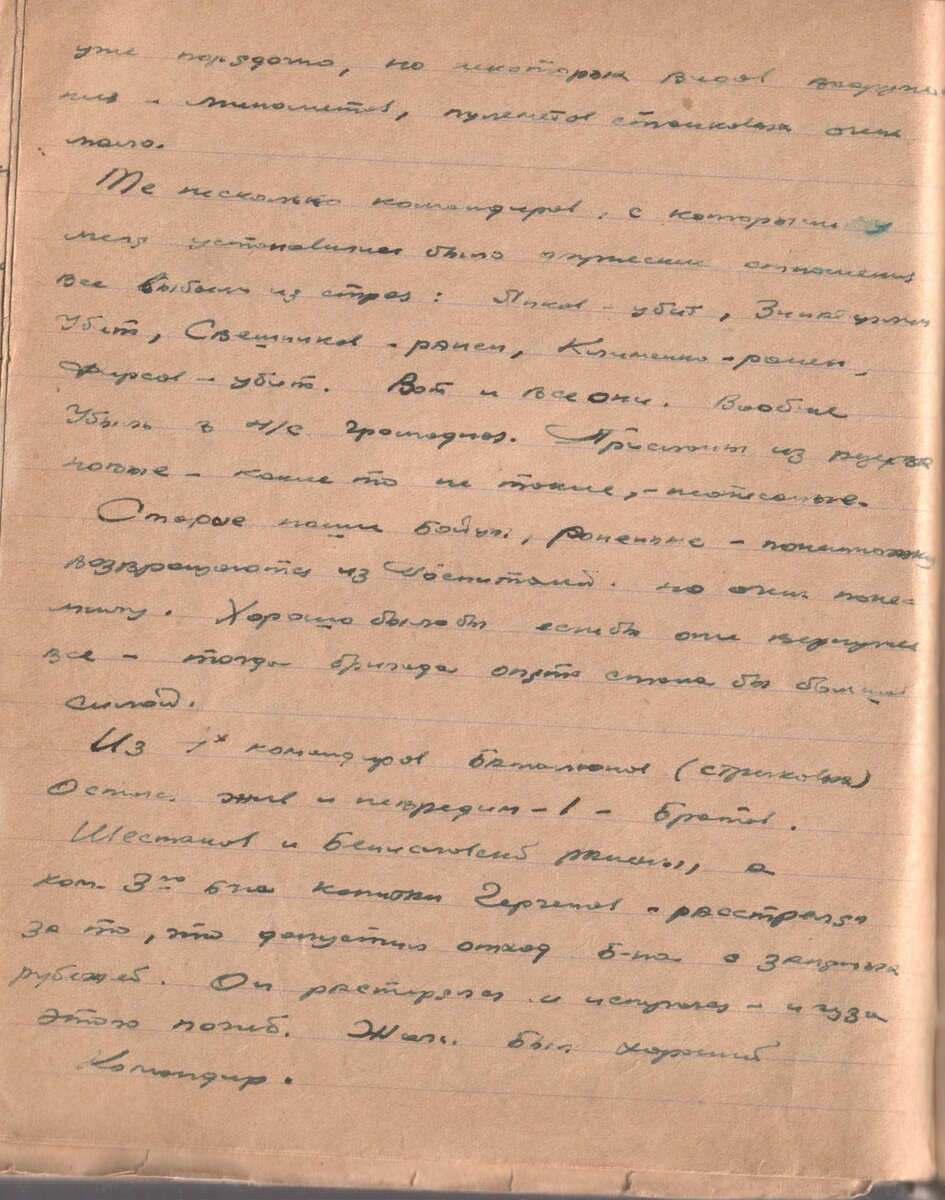 уже порядочно, но некоторых видов вооруже-
ния - минометов, пулеметов станковых очень
мало.
Те несколько командиров, с которыми у
меня установились было дружеские отношения
все выбыли из строя: - убит,
убит, Свешников - ранен, Клименко - ранен,
Фирсов - убит. Вот и все они. Вообще
убыль в н/с громадная. Присланы из
новые - какие то не такие, -
Старые наши бойцы, раненые - понемножку
возвращаются из госпиталей. но очень поне-
многу. Хорошо было бы еслибы они вернулись
все - тогда бригада опять стала бы большой
силой.
Из 4х командиров батальонов (стрелковых)
Остался жив и невредим - 1 - Братов.
Шестаков и ранены, а
ком. 3го б-на капитан - расстрелян
за то, что допустил отход б-на с занятых
рубежей. Он растерялся и испугался - и из за
этого погиб. Жаль. Был хороший
Командир.